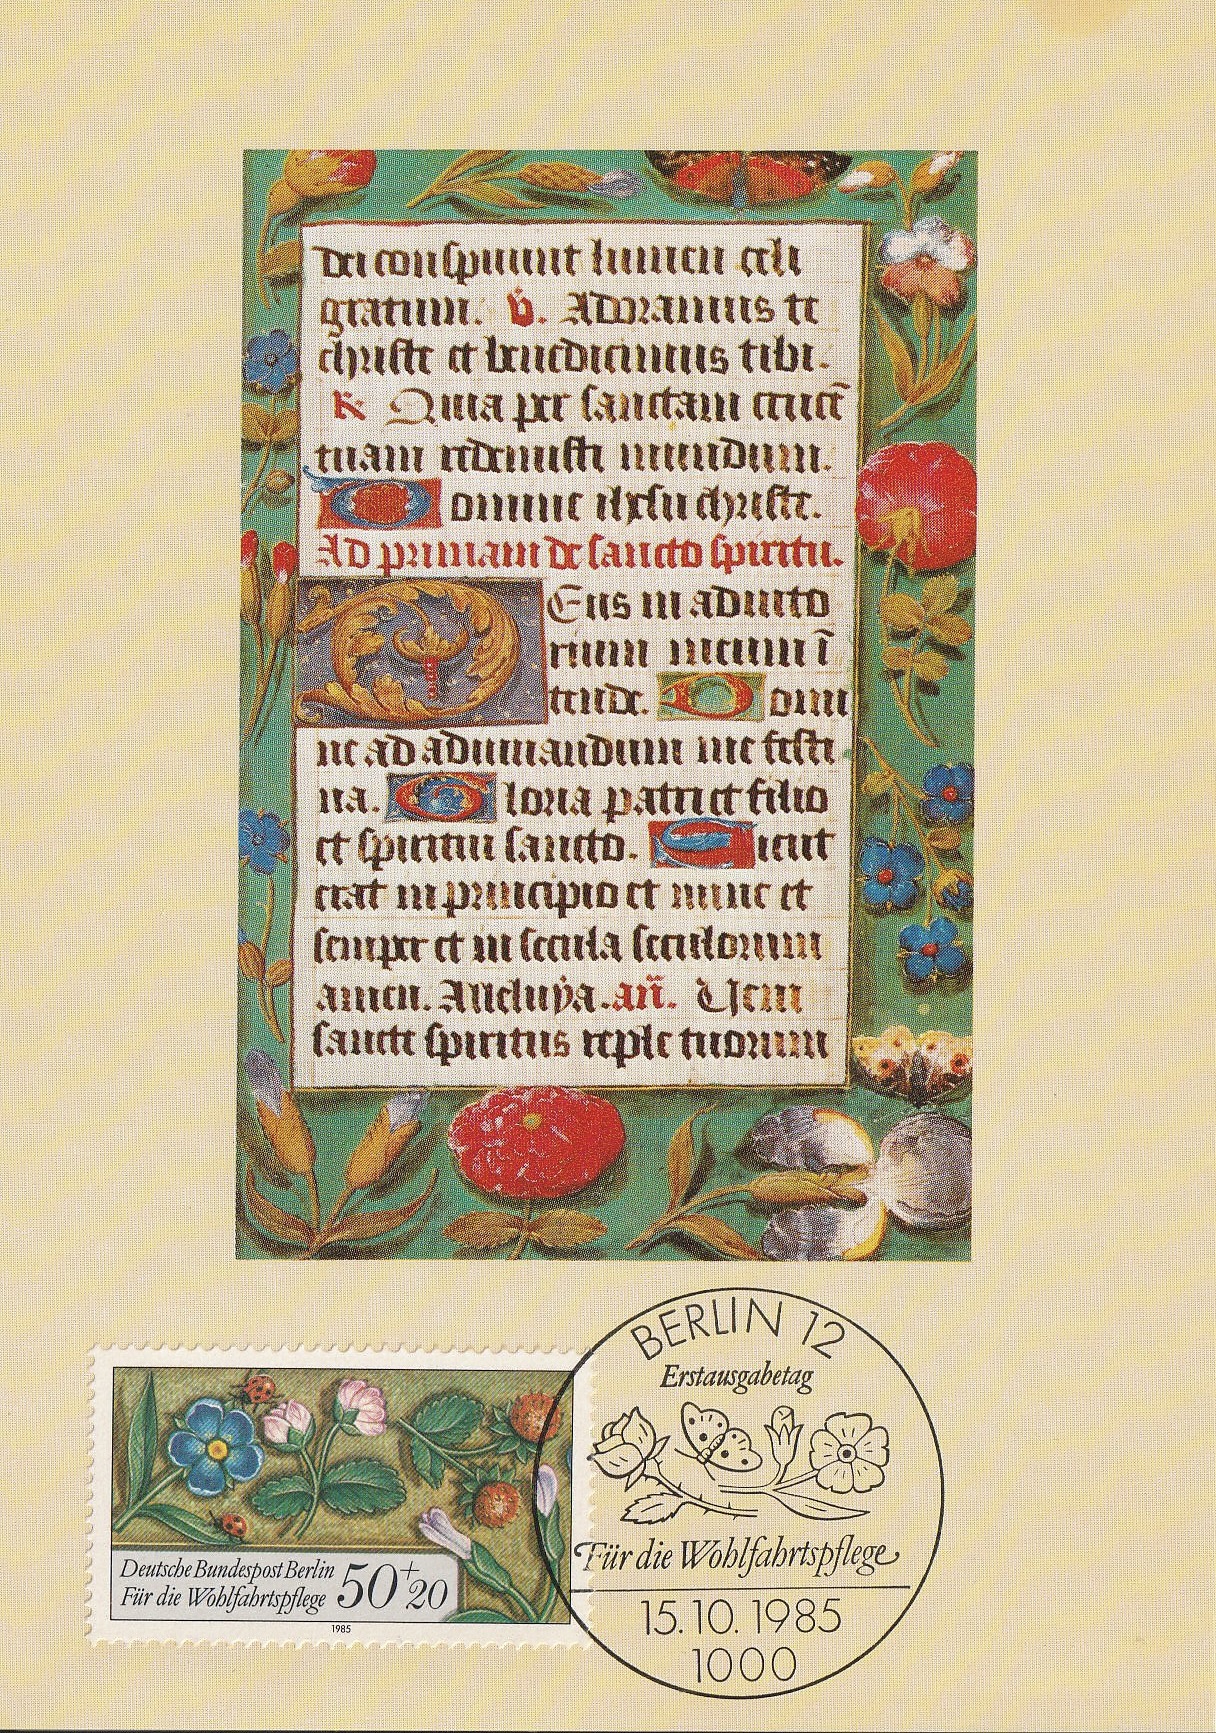 dei conspiciunt lumen celi
gratum. v̈. Adoramus te
christe et benedicimus tibi.
R. Quia per sanctam crucē
tuam redemisti mundum.
Domine ihesu christe.
Ad primam de sancto spiritu.
Deus in adiuto
rium meum ī
tende. Domi
ne ad adiuuandum me festi
na. Gloria patri et filio
et spiritui sancto. Sicut
erat in principio et nunc et
semper et in secula seculorum
amen. Alleluÿa. añ. Ueni
sancte spiritus reple tuorum
BERLIN 12
Erstausgabetag
Für die Wohlfahrtspflege
15.10.1985
1000
Deutsche Bundespost Berlin
Für die Wohlfahrtspflege 50+20
1985